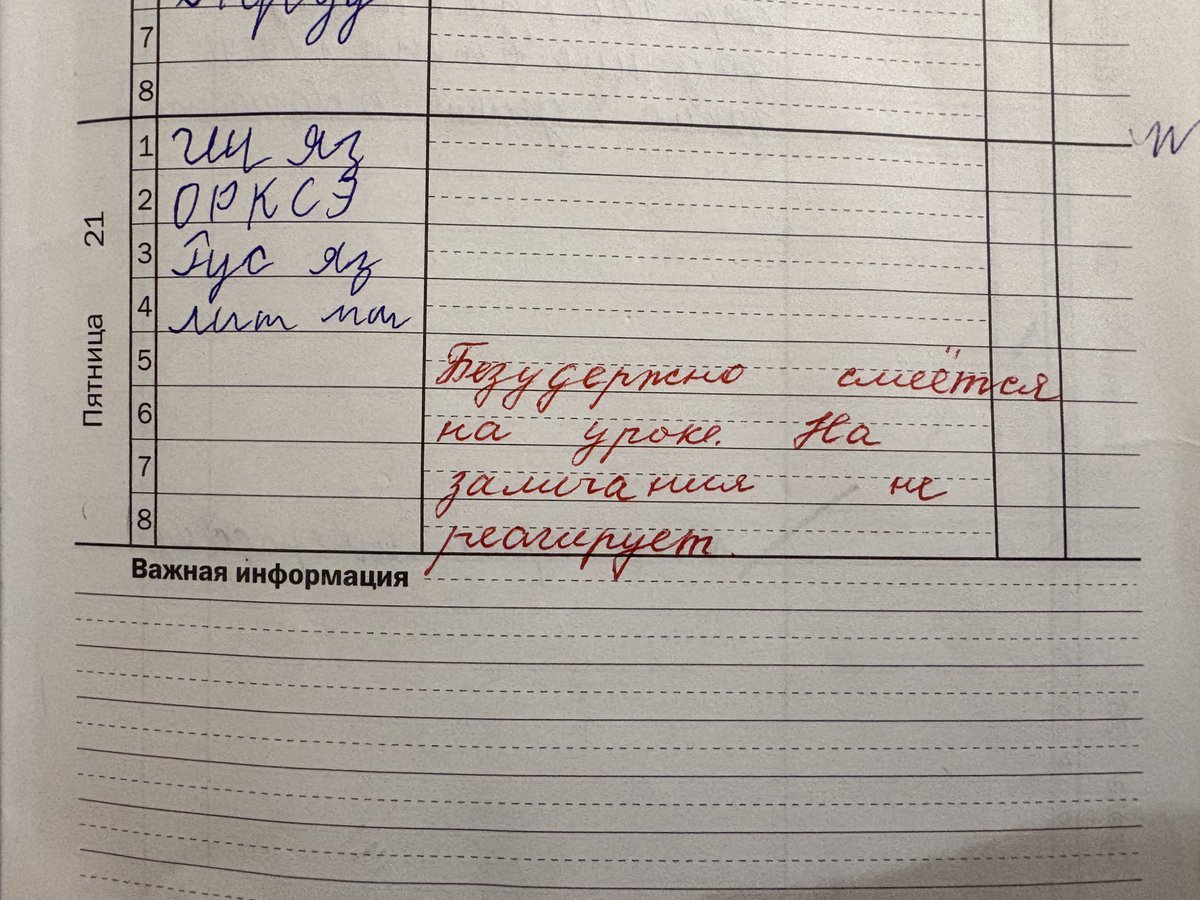 7
8
Пятница 21
1 ин яз
2 ОРКСЭ
3 Рус яз
4 лит
5 Безудержно смеётся
6 на уроке. На
7 замечания не
8 реагирует.
Важная информация